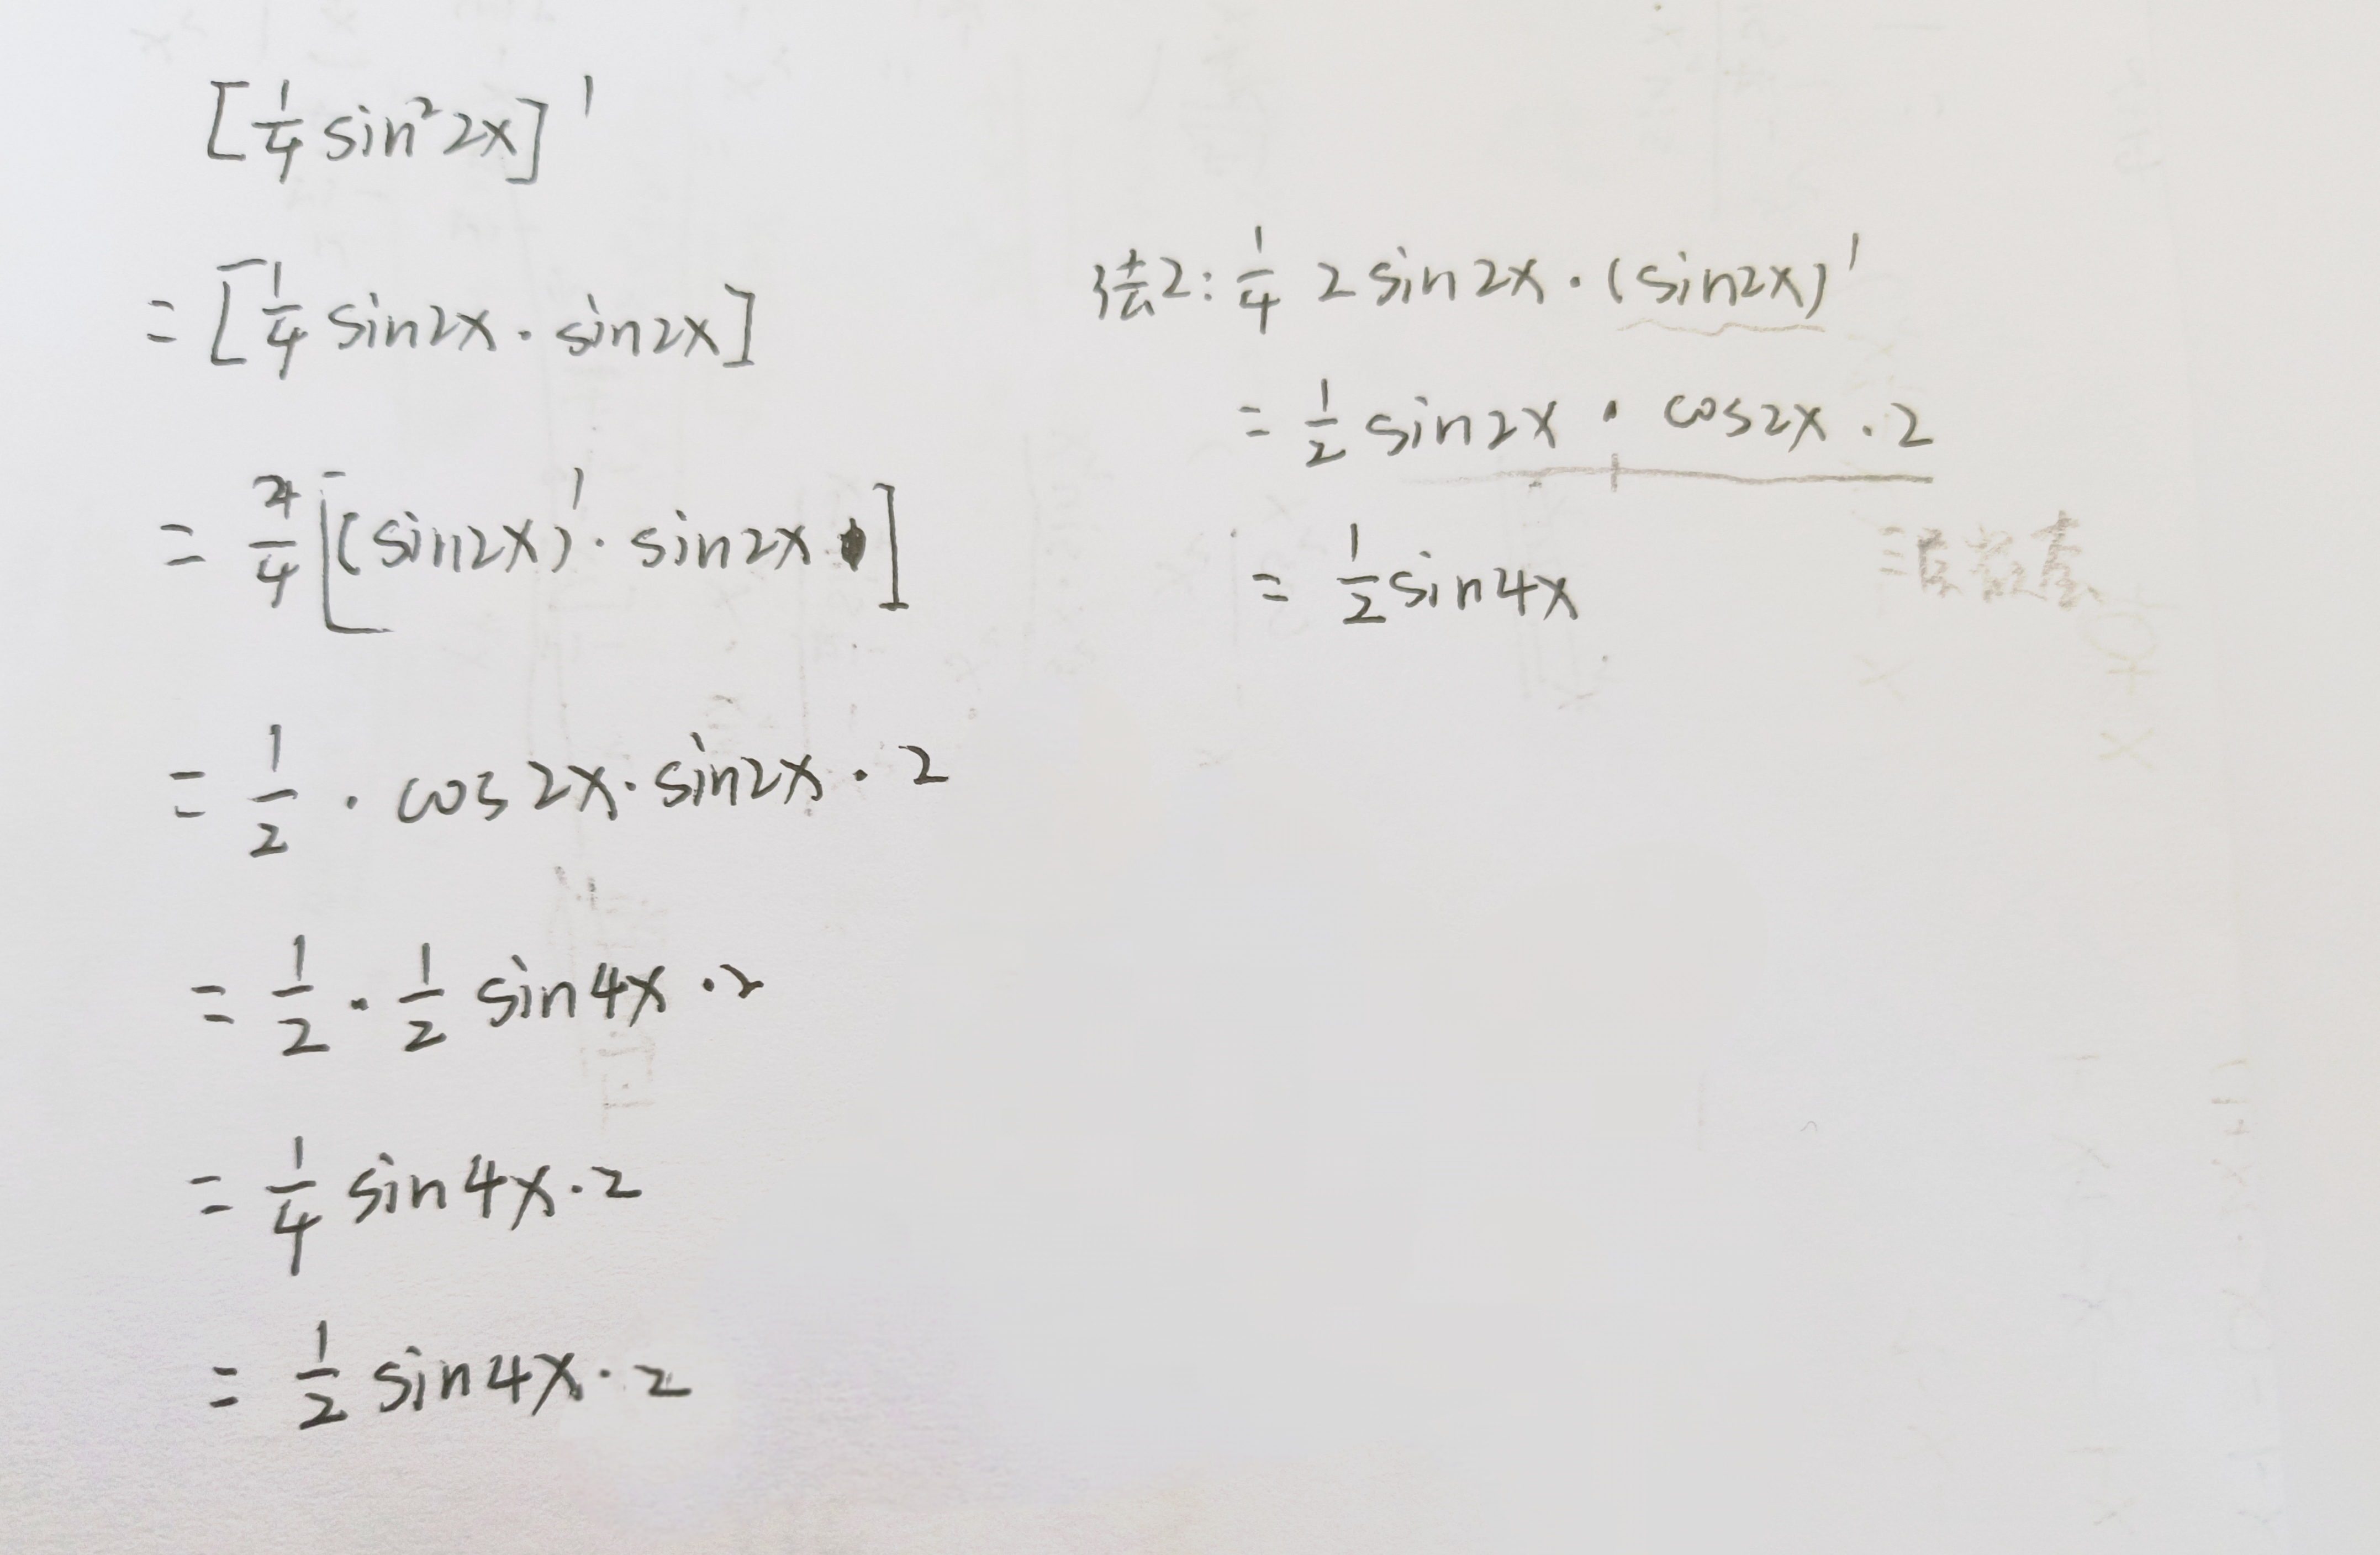 [1/4 sin² 2x]'
= [1/4 sin2x · sin2x]
= 2/4 [(sin2x)' · sin2x]
= 1/2 · cos 2x · sin2x · 2
= 1/2 · 1/2 sin 4x · 2
= 1/4 sin 4x · 2
= 1/2 sin 4x · 2
法2: 1/4 2 sin 2x · (sin2x)'
= 1/2 sin 2x · cos 2x · 2
= 1/2 sin 4x